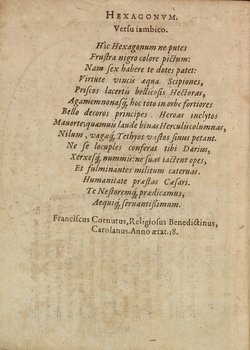 HEXAGONVM.
Versu iambico.
Hîc Hexagonum ne putes
Frustra nigro colore pictum:
Nam sex habere te dotes patet:
Virtute vincis aqua Scipiones,
Priscos lacertis bellicosis Hectoras,
Agamemnonasq́; hoc toto in orbe fortiores
Bello decoros principes: Heroas inclytos
Mauorte, quamuis laude binas Herculis columnas,
Nilum, vagaq́; Tethyos vastos sinus petant.
Ne se locuples conferat tibi Darius,
Xerxesq́; nummis: ne suas iactent opes,
Et fulminantes militum cateruas.
Humanitate præstas Cæsari.
Te Nestoremq́; prædicamus,
Aequiq́; seruantißimum.
Franciscus Cornutus, Religiosus Benedictinus,
Carolanus. Anno ætat. 18.